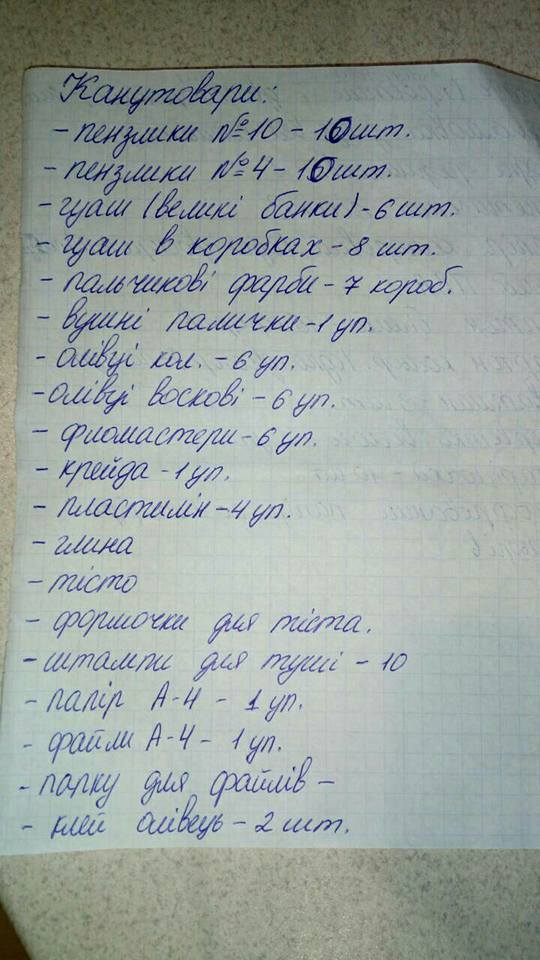 Канцтовари:
- пензлики №10 - 10шт.
- пензлики №4 - 10шт.
- гуаш (великі банки) - 6 шт.
- гуаш в коробках - 8 шт.
- пальчикові фарби - 7 короб.
- вушні палички - 1 уп.
- олівці кол. - 6 уп.
- олівці воскові - 6 уп.
- фломастери - 6 уп.
- крейда - 1 уп.
- пластилін - 4 уп.
- глина
- тісто
- формочки для тіста.
- штампи для туші - 10
- папір А-4 - 1 уп.
- файли А-4 - 1 уп.
- папку для файлів -
- клей олівець - 2 шт.